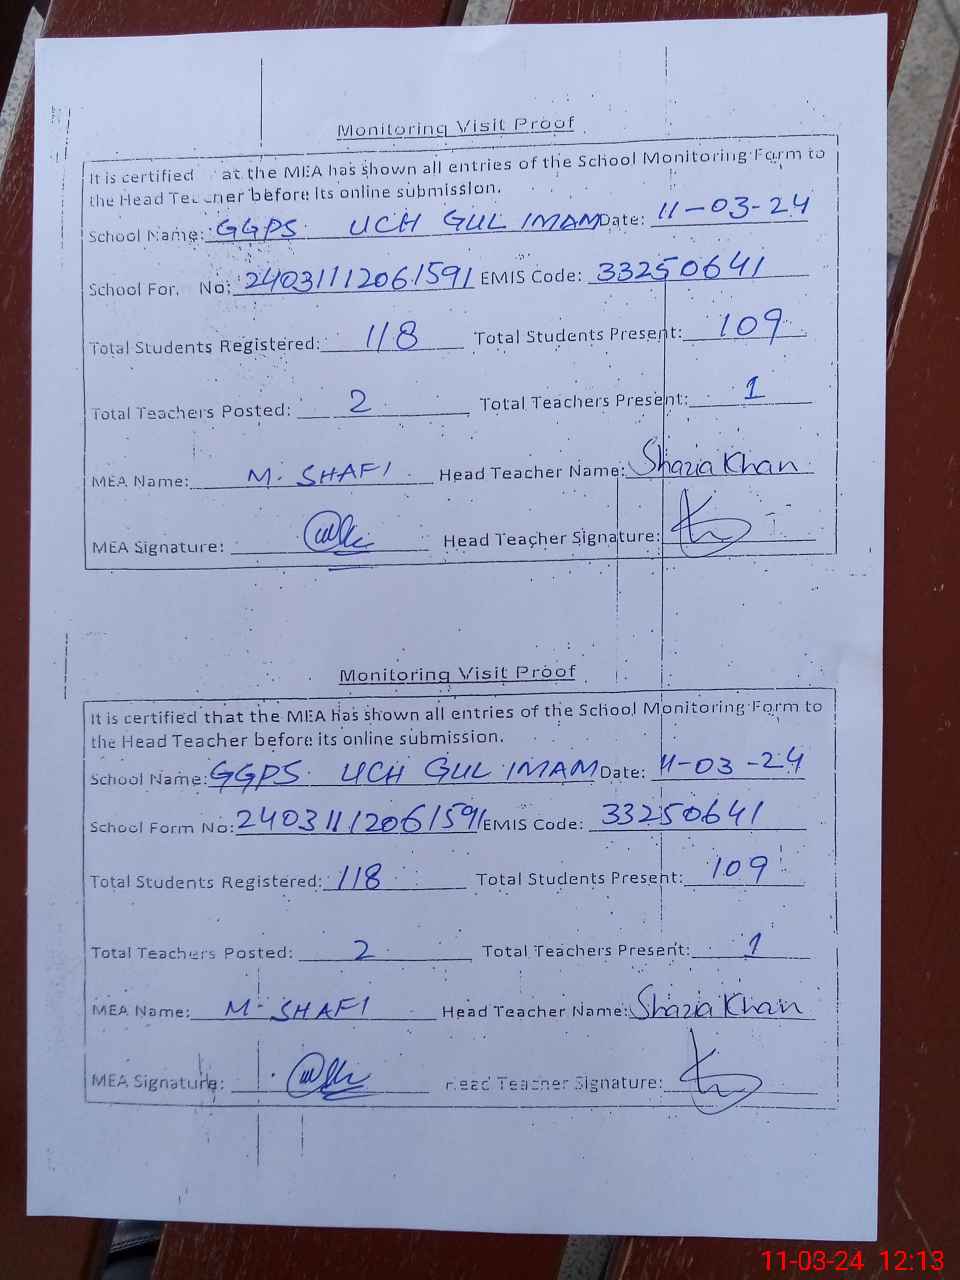 Monitoring Visit Proof
It is certified at the MEA has shown all entries of the School Monitoring Form to
the Head Teacher before its online submission.
School Name: GGPS UCH GUL IMAM Date: 11-03-24
School For. No: 24031112061591 EMIS Code: 33250641
Total Students Registered: 118 Total Students Present: 109
Total Teachers Posted: 2 Total Teachers Present: 1
MEA Name: M. SHAFI Head Teacher Name: Shazia Khan
MEA Signature: Head Teacher Signature:
Monitoring Visit Proof
It is certified that the MEA has shown all entries of the School Monitoring Form to
the Head Teacher before its online submission.
School Name: GGPS UCH GUL IMAM Date: 11-03-24
School Form No: 24031112061591 EMIS Code: 33250641
Total Students Registered: 118 Total Students Present: 109
Total Teachers Posted: 2 Total Teachers Present: 1
MEA Name: M. SHAFI Head Teacher Name: Shazia Khan
MEA Signature: Head Teacher Signature:
11-03-24 12:13